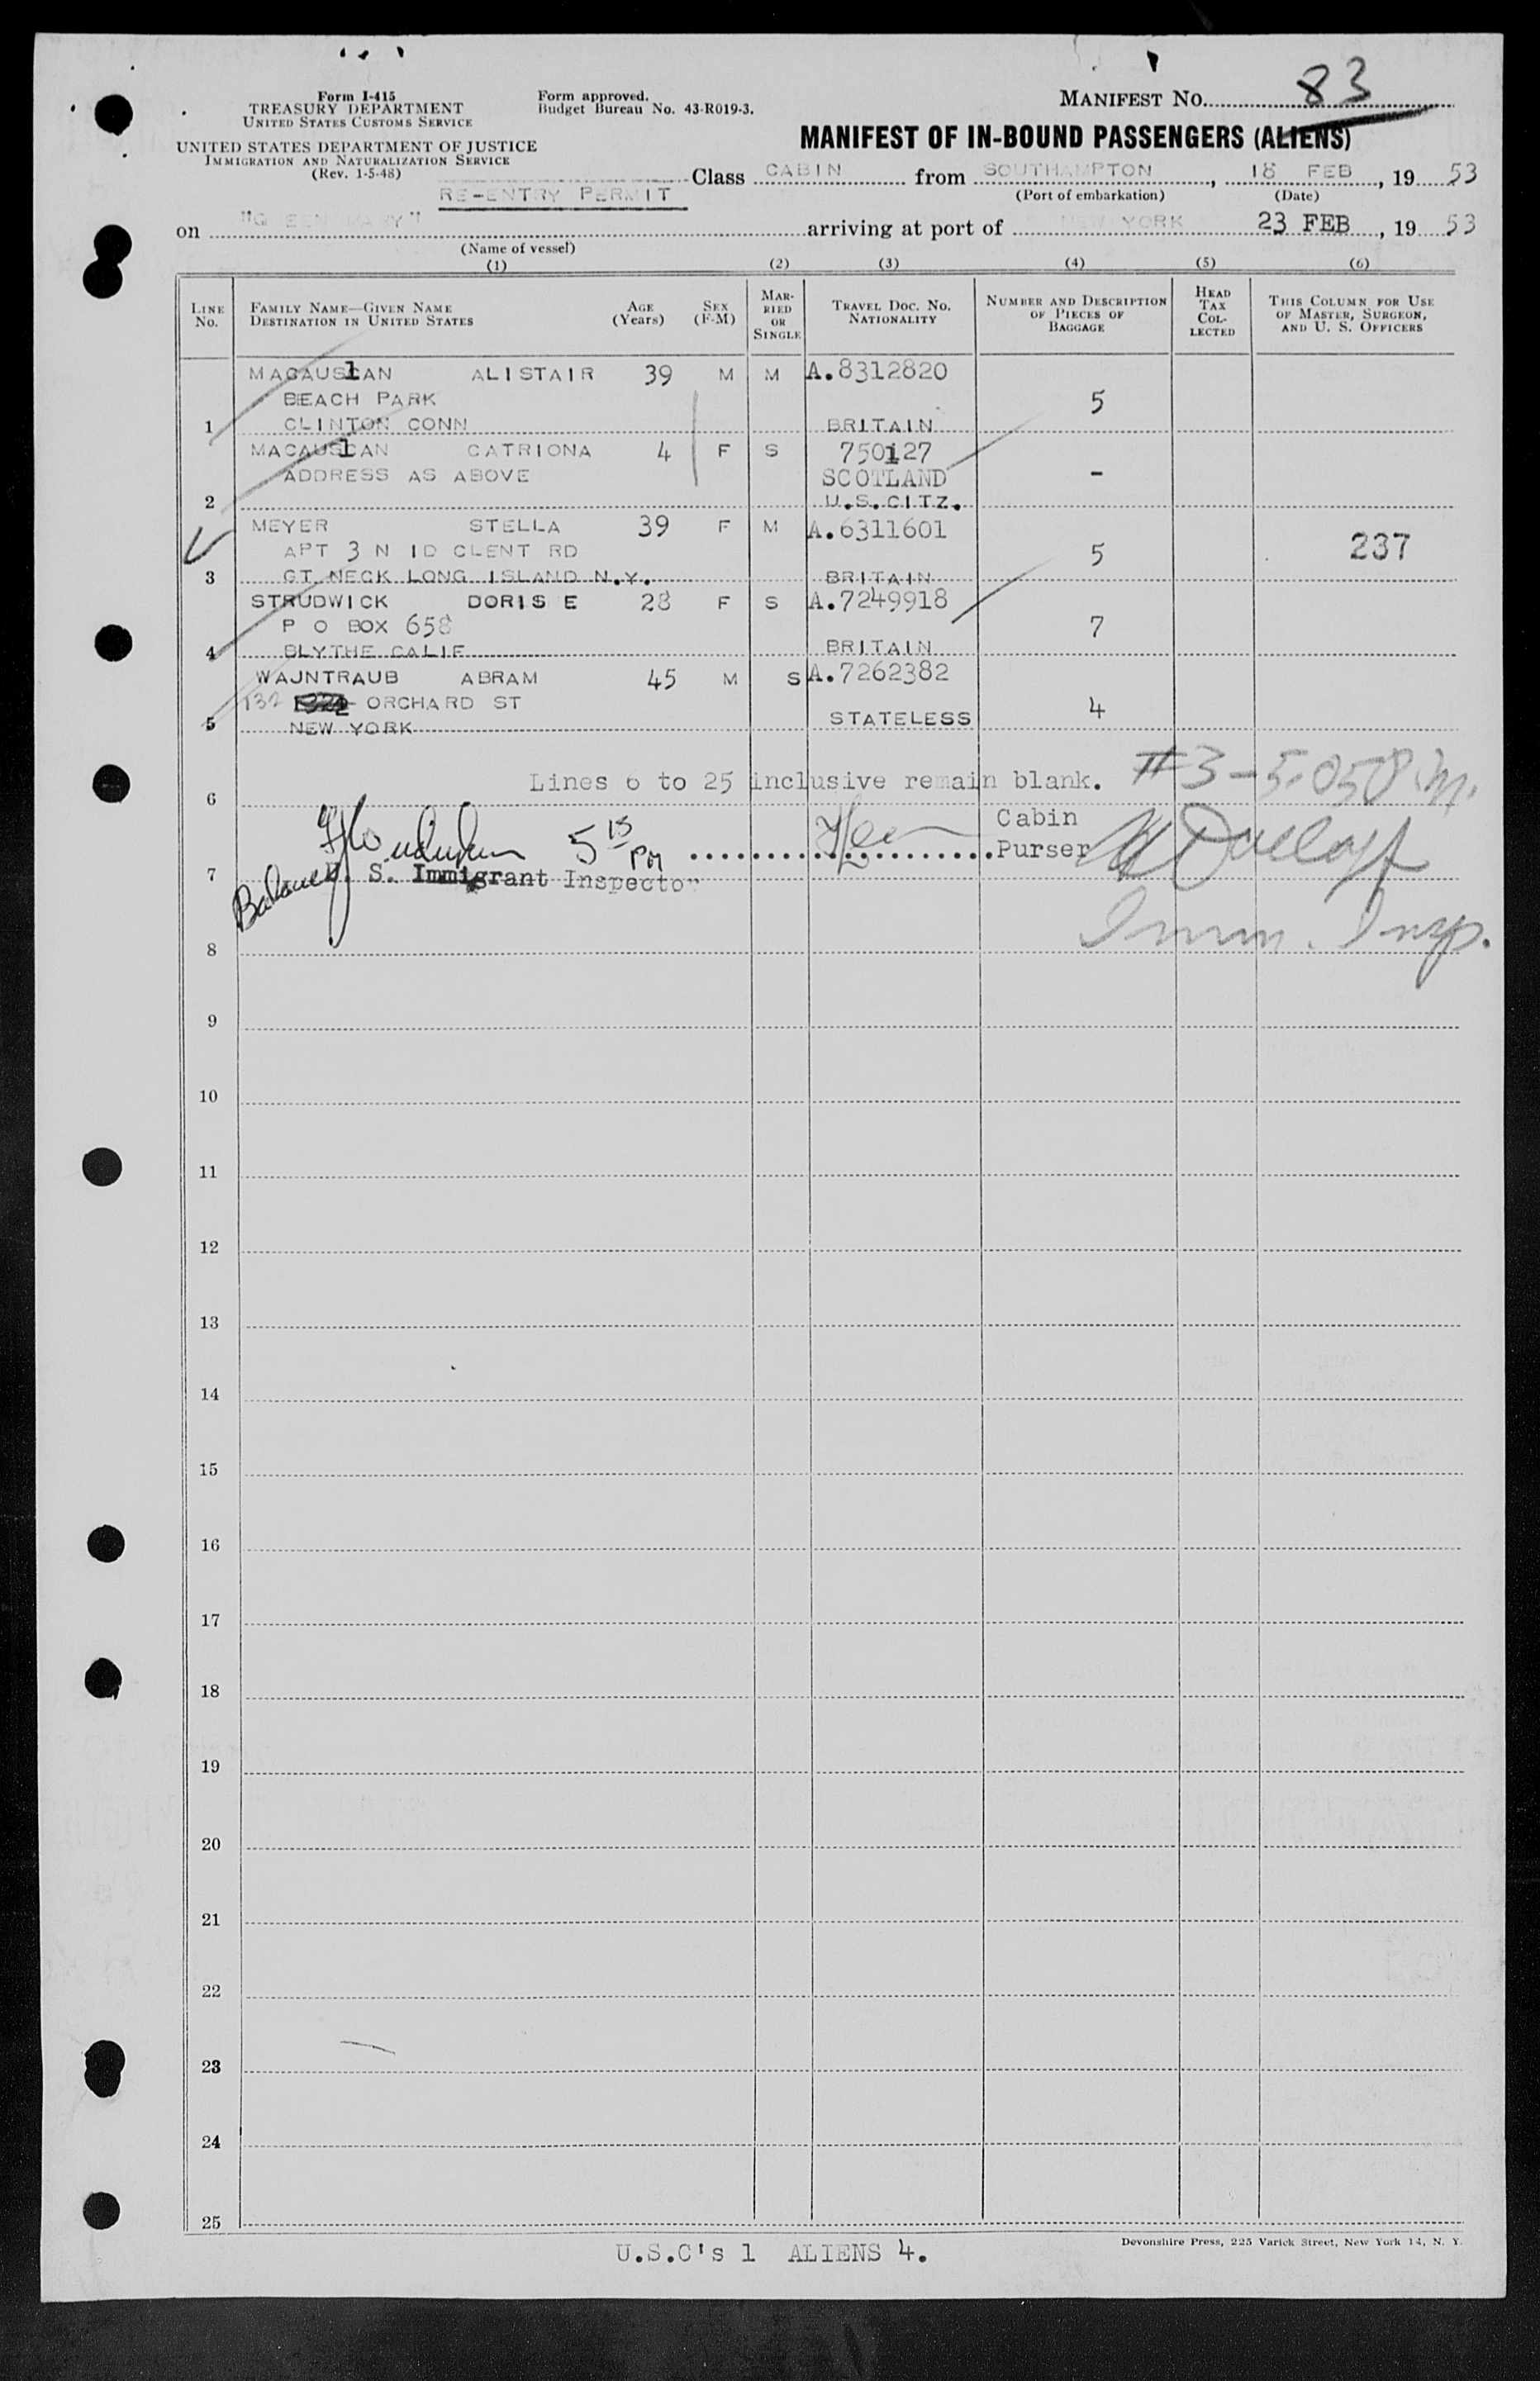 Form I-415
TREASURY DEPARTMENT
UNITED STATES CUSTOMS SERVICE
UNITED STATES DEPARTMENT OF JUSTICE
IMMIGRATION AND NATURALIZATION SERVICE
(Rev. 1-5-48)
Form approved.
Budget Bureau No. 43-R019-3.
MANIFEST NO. 83
MANIFEST OF IN-BOUND PASSENGERS (ALIENS)
RE-ENTRY PERMIT
Class CABIN from SOUTHAMPTON, 18 FEB, 19 53
(Port of embarkation) (Date)
on "QUEEN MARY" arriving at port of NEW YORK 23 FEB, 19 53
(Name of vessel)
(1) (2) (3) (4) (5) (6)
LINE No. FAMILY NAME—GIVEN NAME DESTINATION IN UNITED STATES AGE (Years) SEX (F-M) MARRIED OR SINGLE TRAVEL DOC. NO. NATIONALITY NUMBER AND DESCRIPTION OF PIECES OF BAGGAGE HEAD TAX COLLECTED THIS COLUMN FOR USE OF MASTER, SURGEON, AND U. S. OFFICERS
MACAUSLAN ALISTAIR 39 M M A.8312820
BEACH PARK 5
1 CLINTON CONN BRITAIN
MACAUSLAN CATRIONA 4 F S 750127
ADDRESS AS ABOVE SCOTLAND -
2 U.S.CITZ.
MEYER STELLA 39 F M A.6311601
APT 3 N ID CLENT RD 5 237
3 GT NECK LONG ISLAND N.Y. BRITAIN
STRUDWICK DORIS E 28 F S A.7249918
P O BOX 658 7
4 BLYTHE CALIF BRITAIN
WAJNTRAUB ABRAM 45 M S A.7262382
132 ORCHARD ST 4
5 NEW YORK STATELESS
6 Lines 6 to 25 inclusive remain blank. #3-5.05P.M.
5 15 PM Cabin
Purser
7 U. S. Immigrant Inspector
Imm. Insp.
8
9
10
11
12
13
14
15
16
17
18
19
20
21
22
23
24
25
U.S.C's 1 ALIENS 4.
Devonshire Press, 225 Varick Street, New York 14, N. Y.